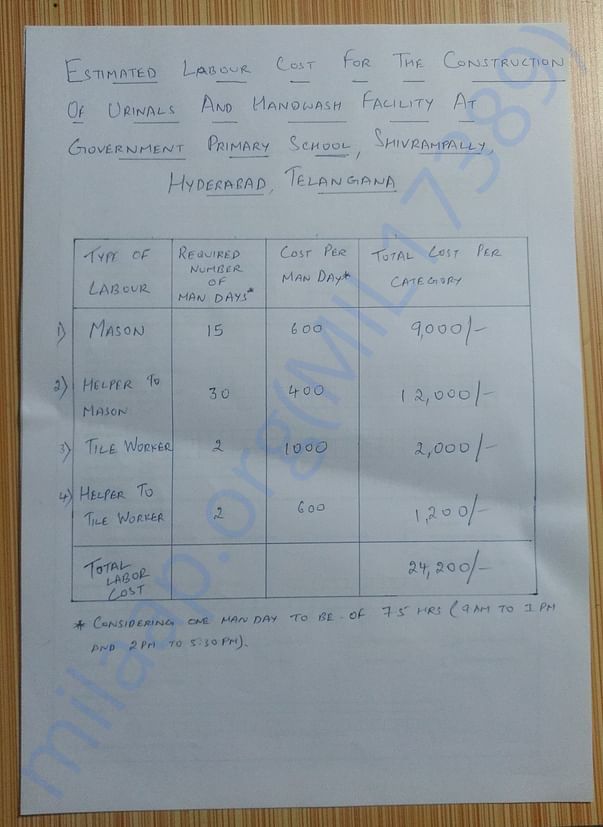 ESTIMATED LABOUR COST FOR THE CONSTRUCTION
OF URINALS AND HANDWASH FACILITY AT
GOVERNMENT PRIMARY SCHOOL, SHIVRAMPALLY,
HYDERABAD, TELANGANA
TYPE OF LABOUR REQUIRED NUMBER OF MAN DAYS* COST PER MAN DAY* TOTAL COST PER CATEGORY
1) MASON 15 600 9,000/-
2) HELPER TO MASON 30 400 12,000/-
3) TILE WORKER 2 1000 2,000/-
4) HELPER TO TILE WORKER 2 600 1,200/-
TOTAL LABOR COST 24,200/-
* CONSIDERING ONE MAN DAY TO BE OF 7.5 HRS (9 AM TO 1 PM
AND 2 PM TO 5.30 PM).
milaap.org(MIL17389)